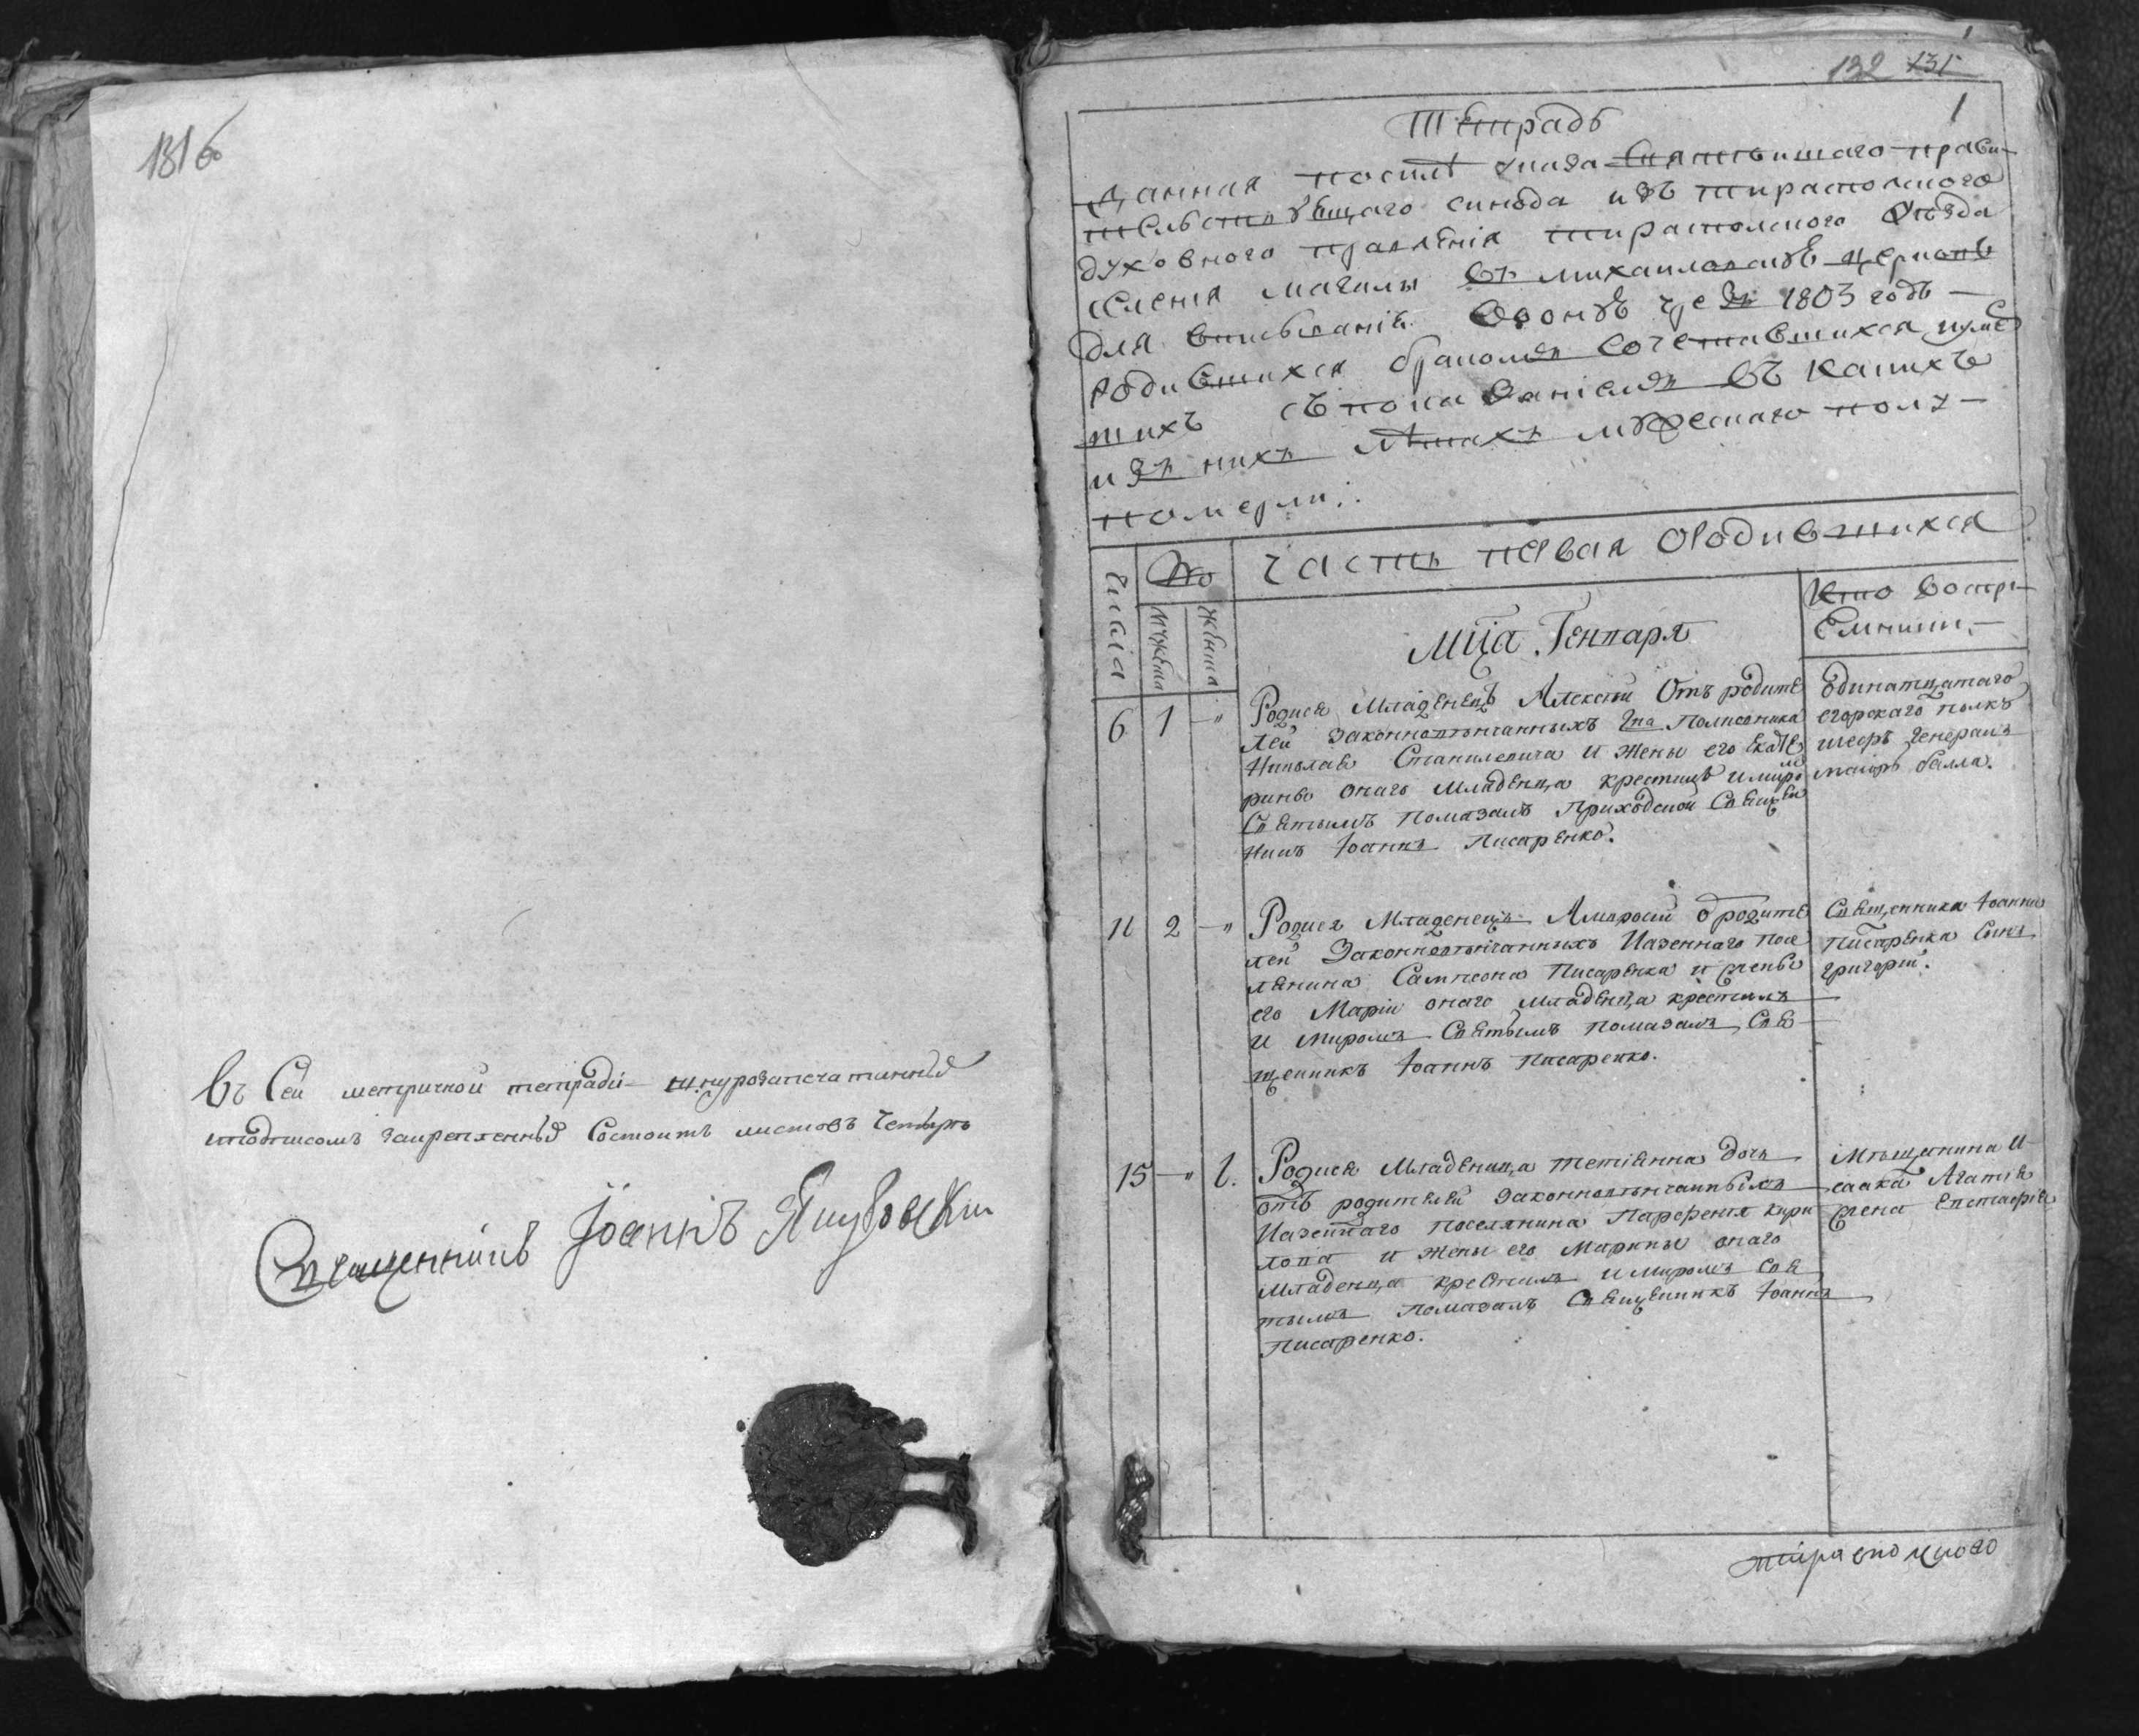 1816
Въ Сей метричной тетради шнурозапечатанныя
иподписомъ закрепленныя Состоитъ листовъ Четыре
Священникъ Іоаннъ
132 131
1
Тетрадь
Данная после указа Святейшаго прави-
тельствующаго синода изъ тираспольского
духовного правления тираспольского Уезда
селения Магилы въ михаиловскую церковь
для вписывания 1803 годъ
родившихся бракомъ Сочетавшихся иуме
шихъ съ показаниемъ въ какихъ
изъ нихъ летахъ мужескаго полу
померли:
числа
Но
часть первая Ородившихся
мужеска
женска
Мца Генваря
Кто Воспри-
Емники
6 1 — "
Родися Младенецъ Алексѣй Отъ родите
лей Законновѣнчанныхъ Гна Полковника
Николая Станилевича и Жены его Екате
рины онаго Младенца крестилъ имиро
Святымъ Помазалъ Приходской Священ
никъ Іоаннъ Писаренко.
Одинатцатаго
егерскаго полка
шефъ Генералъ
маиоръ балла.
11 2 — "
Родися Младенецъ Амвросий о родите
лей Законновѣнчанныхъ Казеннаго посе
лянина Сампсона Писаренка и жены
его Марии онаго Младенца крестилъ
И Миромъ Святымъ помазалъ Свя
щенникъ Іоаннъ Писаренко.
Священника Іоанна
Писаренка Сынъ
григорий.
15 — " 1.
Родися Младеница Тетіянна Дочь
отъ родителей Законновѣнчанныхъ
Казеннаго поселянина Парфения Кири
лова и Жены его Марины онаго
Младенца крестилъ и Миромъ Свя
тымъ Помазалъ Священникъ Іоаннъ
Писаренко.
Мѣщанина И
саака Агатия
Жена Евстафия
тираспольского